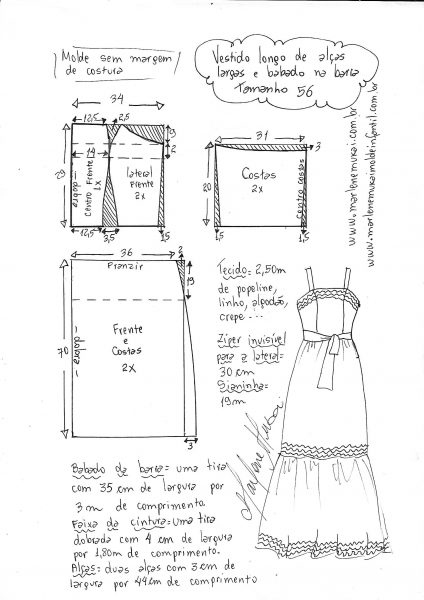 Molde sem margem
de costura
Vestido longo de alças
largas e babado na barra
Tamanho 56
www.marlenemukai.com.br
www.marlenemukaimoldeinfantil.com.br
34
12,5
2,5
29
14
2
dobra
Centro Frente
1x
lateral
Frente
2x
12,5
3,5
1,5
31
3
20
Costas
2x
Centro costas
1,5
1,5
36
2
Franzir
19
70
dobra
Frente
e
Costas
2x
3
Tecido= 2,50m
de popeline,
linho, algodão,
crepe ---
Ziper invisível
para a lateral=
30 cm
Sianinha=
19m
Marlene Mukai
Babado da barra= uma tira
com 35 cm de largura por
3 m de comprimento.
Faixa da cintura= uma tira
dobrada com 4 cm de largura
por 1,80m de comprimento.
Alças= duas alças com 3cm de
largura por 44cm de comprimento